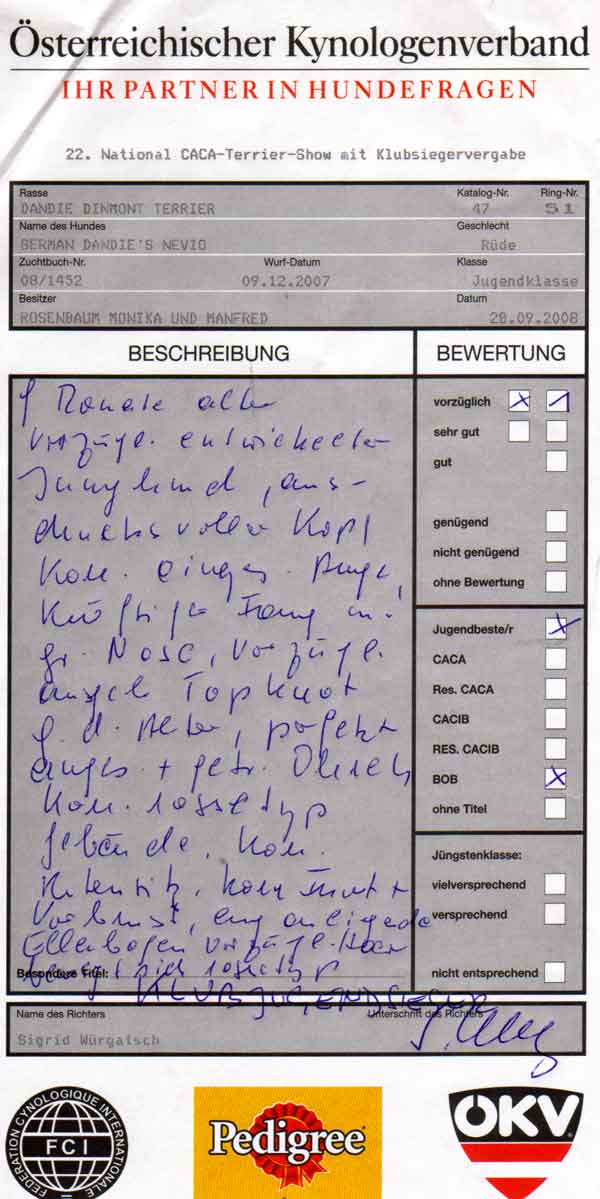 Österreichischer Kynologenverband
IHR PARTNER IN HUNDEFRAGEN
22. National CACA-Terrier-Show mit Klubsiegervergabe
Rasse Katalog-Nr. Ring-Nr.
DANDIE DINMONT TERRIER 47 51
Name des Hundes Geschlecht
GERMAN DANDIE'S NEVIO Rüde
Zuchtbuch-Nr. Wurf-Datum Klasse
08/1452 09.12.2007 Jugendklasse
Besitzer Datum
ROSENBAUM MONIKA UND MANFRED 20.09.2008
BESCHREIBUNG BEWERTUNG
9 Monate alter
vorzügl. entwickelter
Junghund, aus-
drucksvoller Kopf
korr. einges. Auge,
kräftiger Fang m.
gr. Nase, vorzügl.
Topknot
f. d. Alter, perfekt
anges + getr. Ohren
korr. rassetyp
Gebäude, korr.
Rutensitz, korr Front +
Vorbrust, eng anliegende
Ellenbogen vorzügl. Haar
bewegt sich rassetyp
vorzüglich
sehr gut
gut
genügend
nicht genügend
ohne Bewertung
Jugendbeste/r
CACA
Res. CACA
CACIB
RES. CACIB
BOB
ohne Titel
Jüngstenklasse:
vielversprechend
versprechend
nicht entsprechend
Besondere Titel:
KLUBJUGENDSIEGER
Name des Richters Unterschrift des Richters
Sigrid Würgatsch
FEDERATION CYNOLOGIQUE INTERNATIONALE
FCI
Pedigree
ÖKV